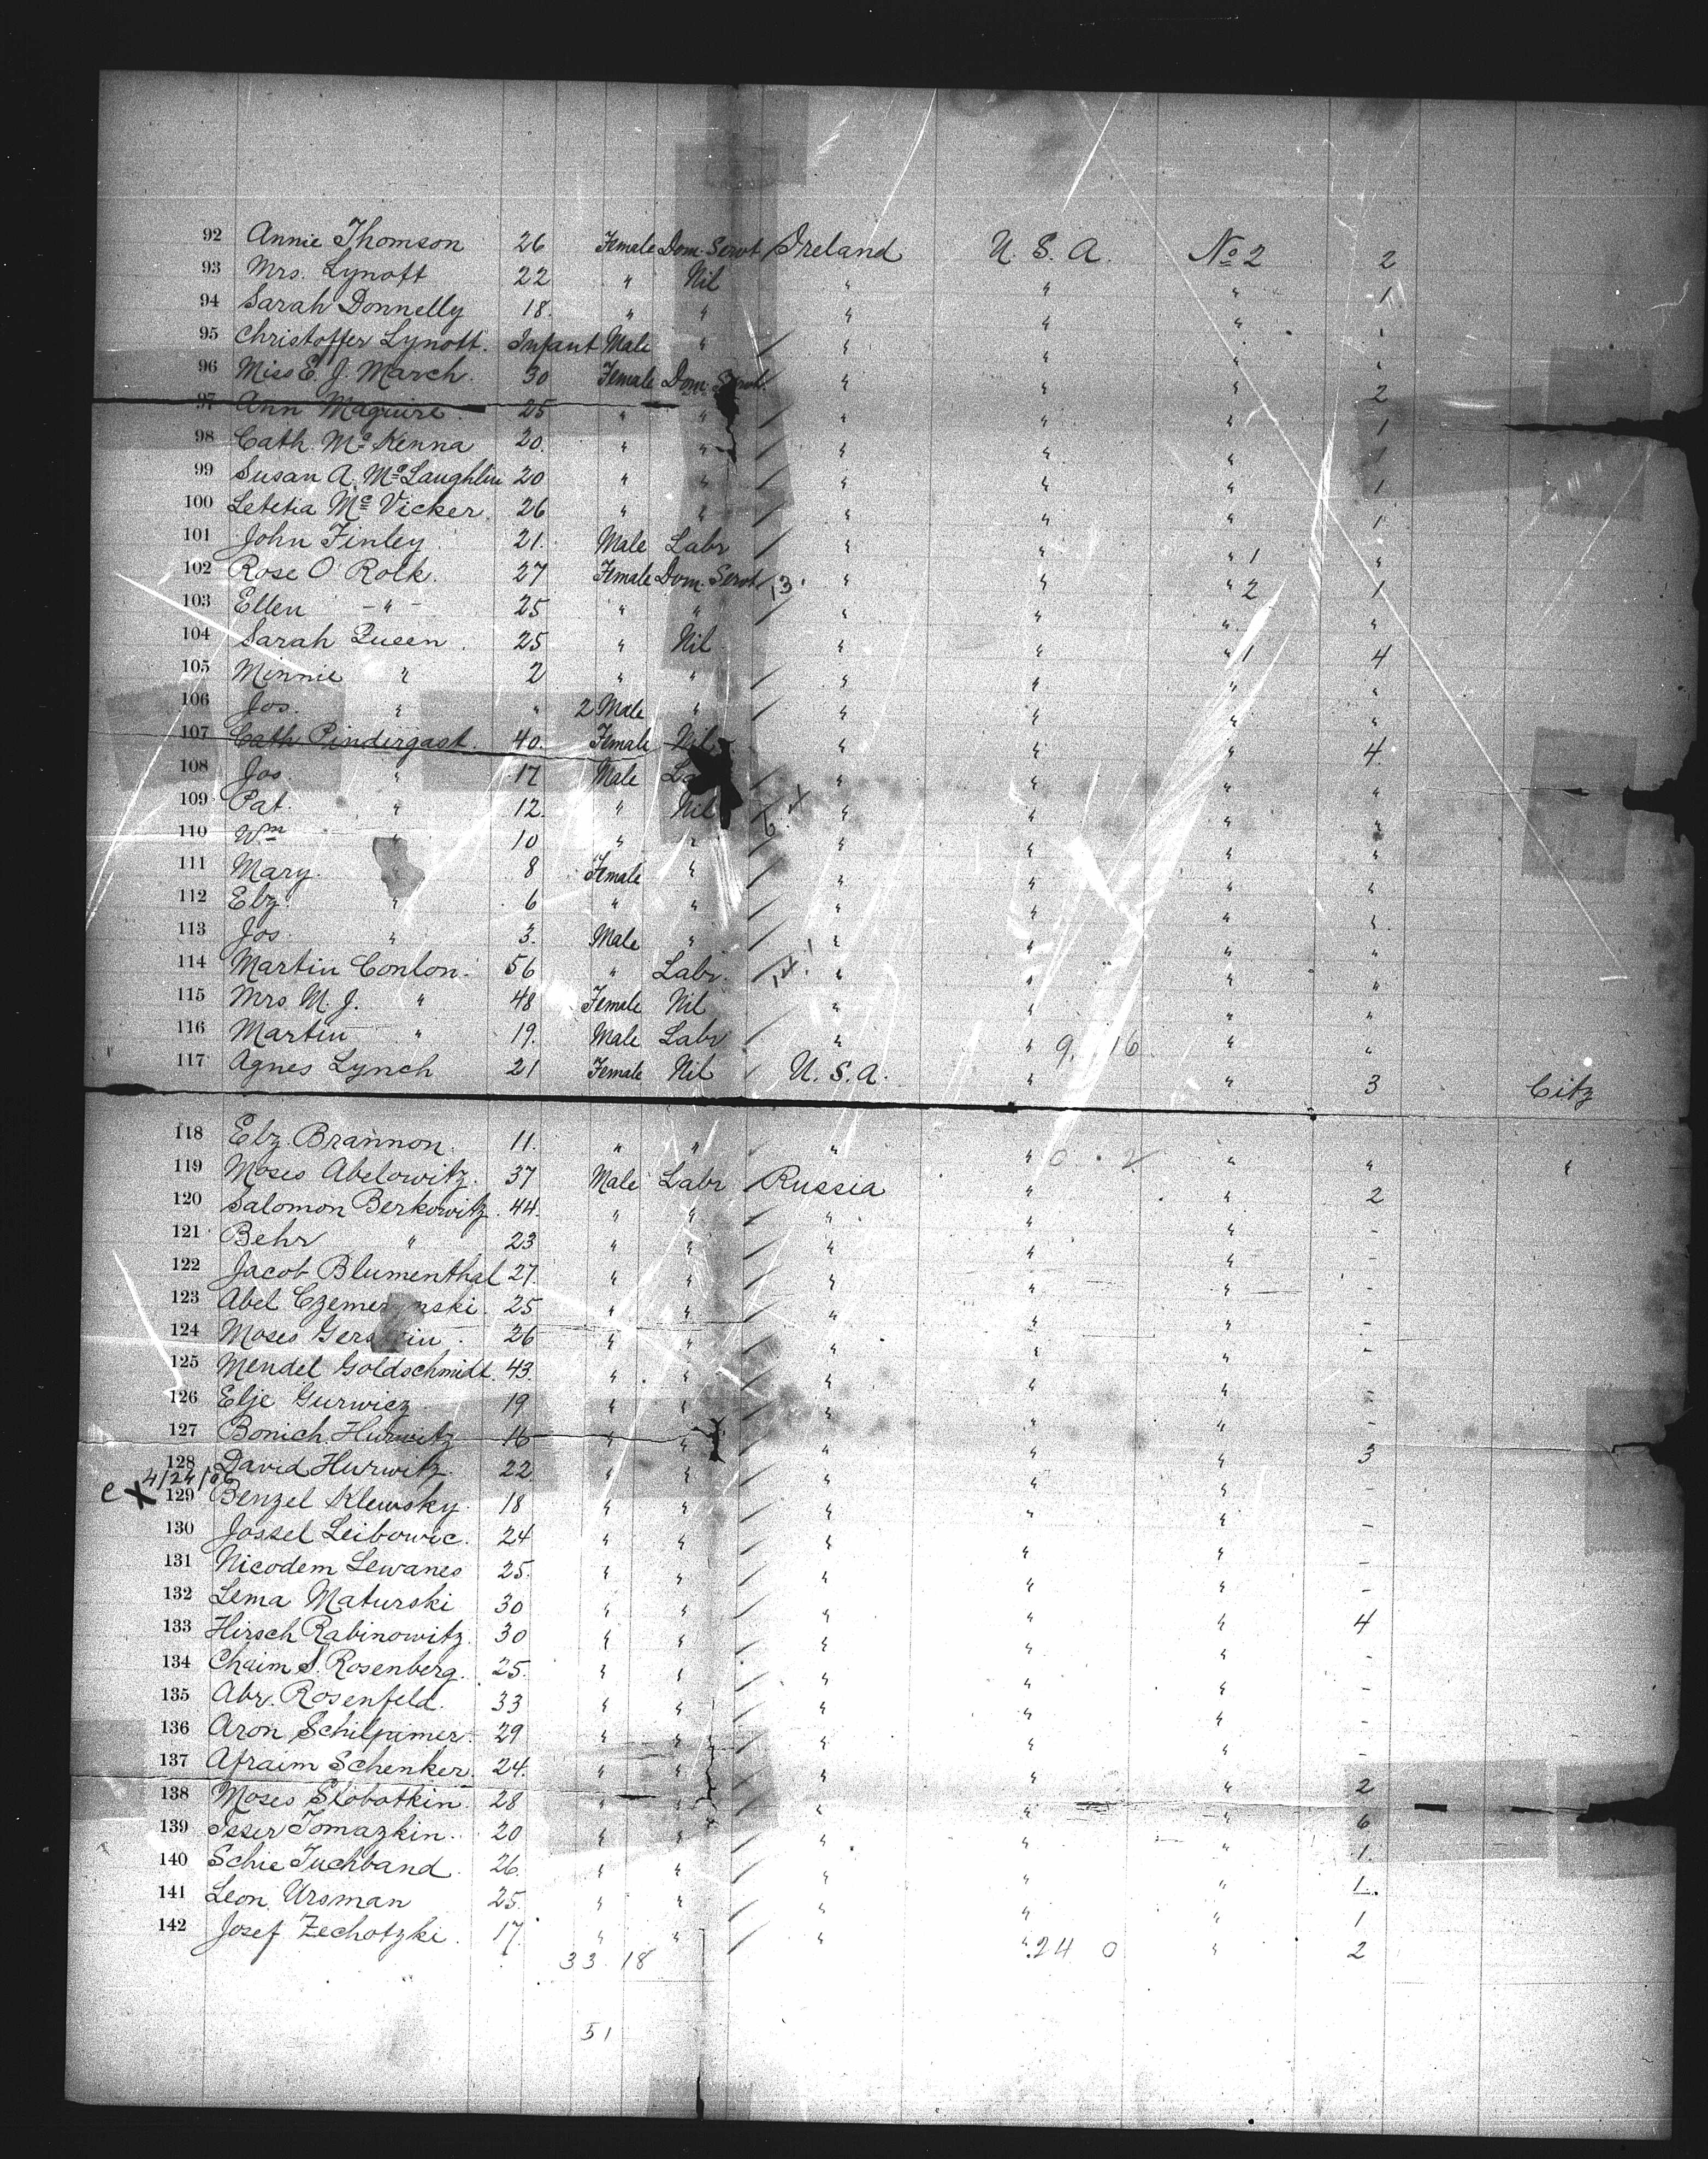 92 Annie Thomson 26 Female Dom. Servt Ireland U. S. A. No 2 2
93 Mrs. Lynott 22 " Nil " " " 1
94 Sarah Donnelly 18. " " " " " "
95 Christoffer Lynott. Infant Male " " " " "
96 Miss E. J. March. 30 Female Dom. Servt. " " " 2
97 Ann Maguire. 25 " " " " " 1
98 Cath. Mc Kenna 20. " " " " " 1
99 Susan A. Mc Laughlin 20 " " " " " 1
100 Letetia Mc Vicker. 26 " " " " " 1
101 John Finley. 21. Male Labr " " " 1 "
102 Rose O' Rolk. 27 Female Dom. Servt 13. " " " 2 1
103 Ellen - " - 25 " " " " " "
104 Sarah Queen. 25 " Nil " " " 1 4
105 Minnie " 2 " " " " " "
106 Jos. " " 2 Male " " " " "
107 Cath Pindergast. 40. Female Nil " " " 4.
108 Jos. " 17 Male " " " "
109 Pat. " 12. " Nil " " " "
110 Wm " 10 " " " " " "
111 Mary. 8 Female " " " " "
112 Elz. " 6 " " " " " "
113 Jos. " 3. Male " " " " "
114 Martin Conlon. 56 " Labr. " " " "
115 Mrs M. J. " 48 Female Nil " " " "
116 Martin " 19. Male Labr " " 9. 16 " "
117 Agnes Lynch 21 Female Nil U. S. A. " " 3 Citz
118 Elz. Brannon. 11. " " " " 0 . 2 " " "
119 Moses Abelowitz. 37 Male Labr Russia " " 2
120 Salomon Berkowitz. 44. " " " " " -
121 Behr " 23 " " " " " -
122 Jacob Blumenthal 27. " " " " " -
123 Abel 25 " " " " " -
124 Moses 26 " " " " " -
125 Mendel Goldschmidt. 43. " " " " " -
126 Elje Gurwicz 19 " " " " " -
127 Bonich Hurwitz 16 " " " " " 3
128 David Hurwitz. 22 " " " " " -
4/24/06
ex 129 Benzel Klewsky. 18 " " " " " -
130 Jossel Leibowic. 24 " " " " " -
131 Nicodem Lewanes 25. " " " " " -
132 Lema Maturski 30 " " " " " 4
133 Hirsch Rabinowitz. 30 " " " " " -
134 Chaim S. Rosenberg. 25. " " " " " -
135 Abr. Rosenfeld. 33 " " " " " -
136 Aron Schilpamer. 29 " " " " " -
137 Afraim Schenker. 24. " " " " " 2
138 Moses Slobotkin. 28 " " " " " 6
139 Isser Tomazkin. 20 " " " " " 1.
140 Schie Tuchband. 26. " " " " " 1.
141 Leon Ursman 25. " " " " " 1
142 Josef Zechotzki. 17. " " " " 24 0 " 2
33 18
51